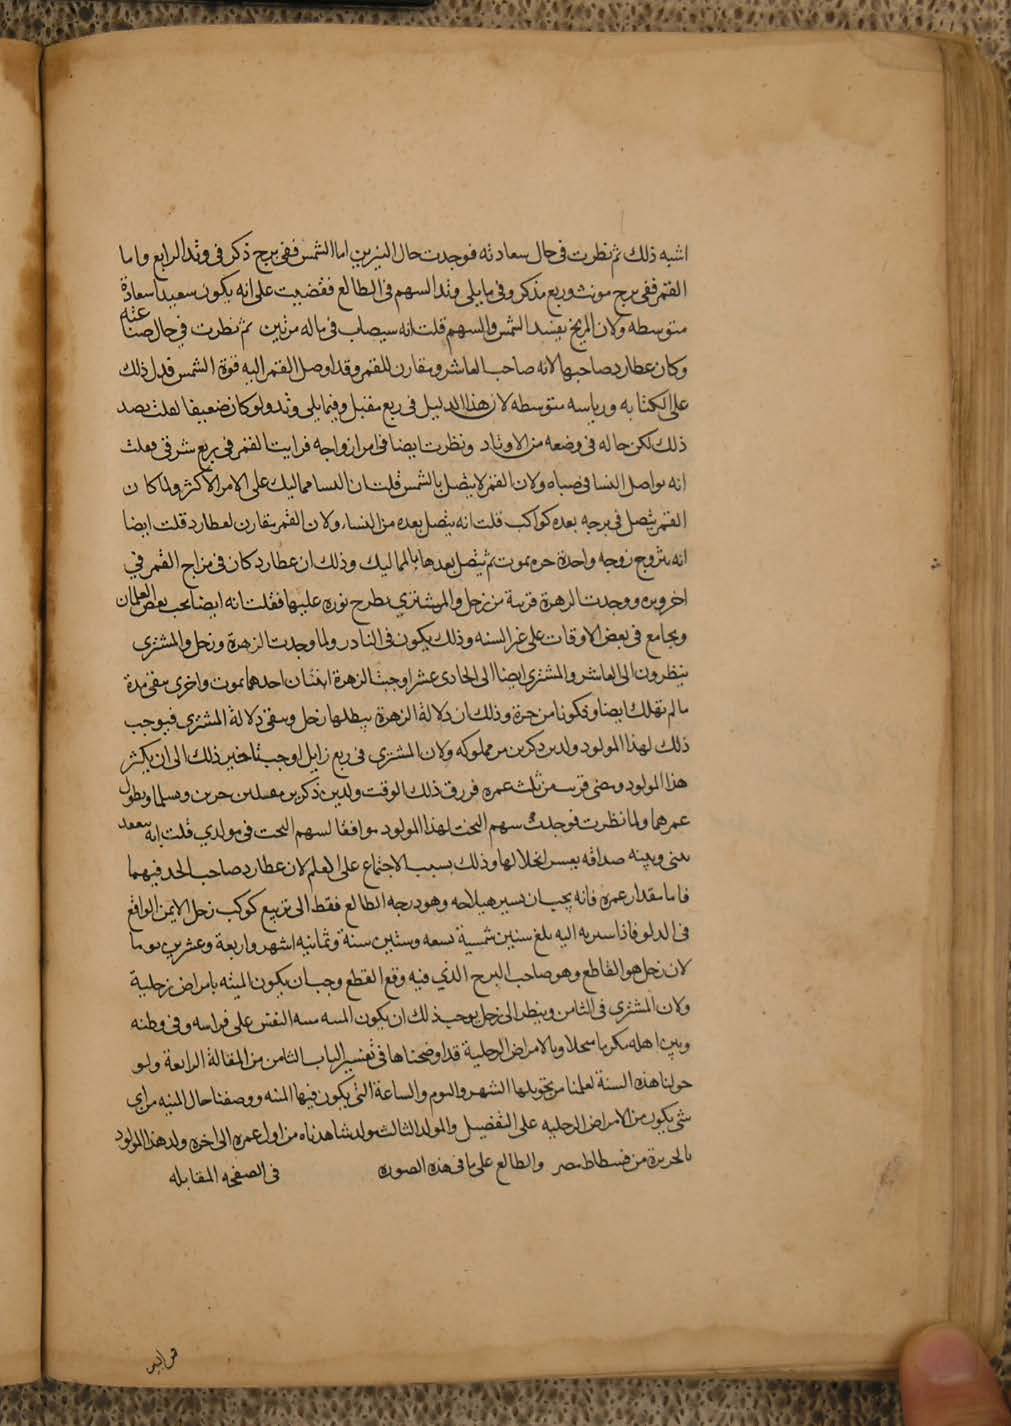 اشبه ذلك ثم نظرت في حال سعادته فوجدت حال النيرين اما الشمس ففي برج ذكر في وتد الرابع واما
القمر ففي برج مونث وربع مذكر وفي ما يلي وتد السهم في الطالع فقضيت على انه يكون سعيدا سعادة
متوسطه ولان المريخ يفسد الشمس والسهم قلت انه سيصاب في ماله مرتين ثم نظرت في حال صناعته
وكان عطارد صاحبها لانه صاحب العاشر ومقارن للقمر وقد اوصل القمر اليه قوة الشمس فدل ذلك
على الكتابه ورياسه متوسطه لان هذا الدليل في ربع مقبل وفيما يلي وتد ولو كان ضعيفا لقلت بضد
ذلك لكن حاله في وضعه من الاوتاد ونظرت ايضا في امر ازواجه فرايت القمر في ربع شرقي فقلت
انه يواصل النسا في صباه ولان القمر لا يتصل بالشمس قلت ان النسا مماليك على الامر الاكثر ولما كان
القمر يتصل في برجه بعده كواكب قلت انه يتصل بعده من النساء ولان القمر مقارن لعطارد قلت ايضا
انه يتزوج زوجه واحدة حره بموت ثم يتصل بعدها بالمماليك وذلك ان عطارد كان في مزاج القمر في
اخر ووجدت الزهرة قريبة من زحل والمشتري مطرح نوره عليها فقلت انه ايضا يحب بعض الغلمان
ويجامع في بعض الاوقات على غير السنه وذلك يكون في النادر ولما وجدت الزهرة وزحل والمشتري
ينظرون الى العاشر والمشتري ايضا الى الحادي عشر اوجبت الزهرة احدهما يموت واخرى يبقى مدة
ما لم تهلك ايضا وتكونا من حرة وذلك ان دلالة الزهرة يبطلها زحل ويبقى دلالة المشتري فيوجب
ذلك لهذا المولود ولدين ذكرين من مملوكه ولان المشتري في ربع زايل اوجبت تاخير ذلك الى ان يكبر
هذا المولود ويمضي قريب من ثلث عمره فرزق ذلك الوقت ولدين ذكرين حرين وسلما ويطول
عمرهما ولما نظرت فوجدت سهم البخت لهذا المولود موافقا لسهم البخت في مولدي قلت انه سيعقد
بيني وبينه صداقه يعسر انحلالها وذلك بسبب الاجتماع على العلم لان عطارد صاحب الحد فيهما
فاما مقدار عمره فانه يجب ان يسير هيلاجه وهو درجه الطالع فقط الى تربيع كوكب زحل الايمن الواقع
في الدلو فاذا سير به اليه بلغ سنين شمسية تسعه وستين سنة وثمانيه اشهر واربعة وعشرين يوما
لان زحل هو القاطع وهو صاحب البرج الذي فيه وقع القطع وجب ان يكون الميته بامراض زحلية
ولان المشتري في الثامن وينظر الى زحل يوجب ذلك ان يكون الميته ميته النفس على فراسه وفي وطنه
وبين اهله مكرما مبجلا وبالامراض الزحلية قد اوضحناها في تفسير الباب الثامن من المقالة الرابعة ولو
حولنا هذه السنة لعلمنا من تحويلها الشهر واليوم والساعة التي يكون فيها الميته ووصفنا حال الميته من اي
شي يكون من الامراض الزحليه على التفصيل والمولد الثالث مولد شاهدناه من اول عمره الى اخره ولد هذا المولود
بالجزيرة من فسطاط مصر والطالع على ما في هذه الصوره في الصفحه المقابله